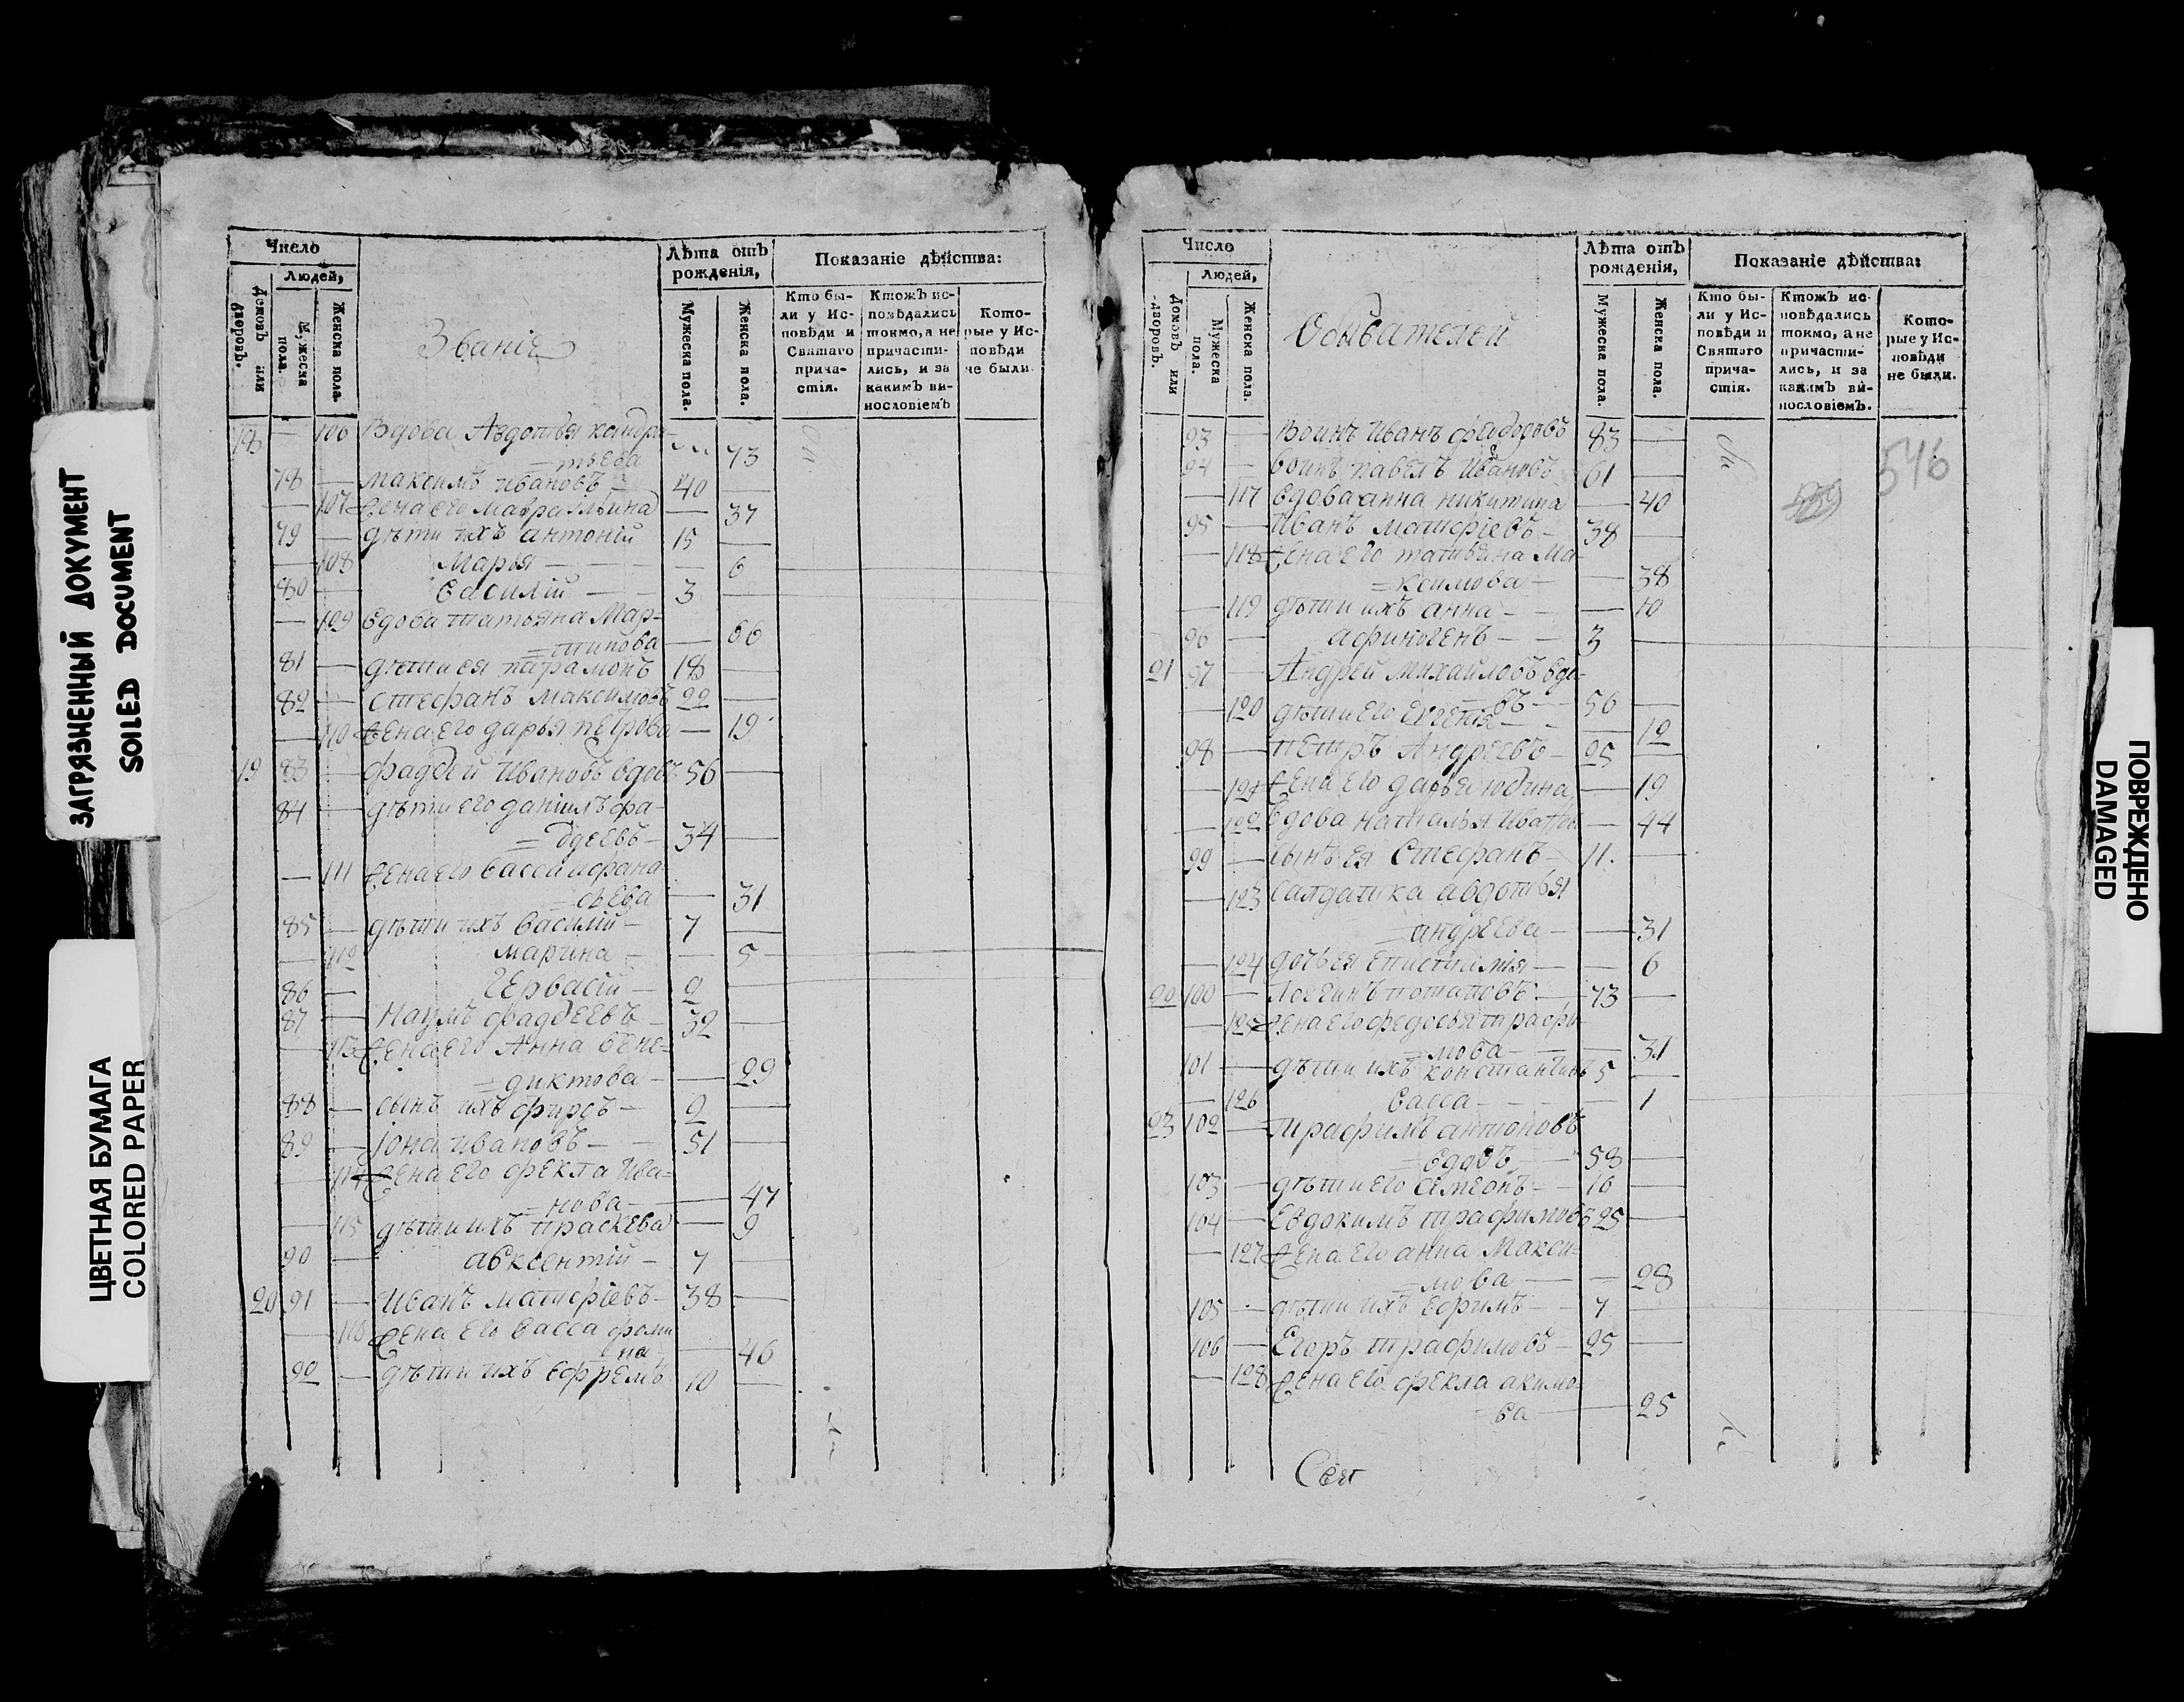 ЗАГРЯЗНЕННЫЙ ДОКУМЕНТ
SOILED DOCUMENT
ЦВЕТНАЯ БУМАГА
COLORED PAPER
Число
Людей,
Домовъ или дворовъ.
Мужеска пола.
Женска пола.
Званіе
Лѣта отъ рожденія,
Мужеска пола.
Женска пола.
Показаніе дѣйства:
Кто бы-
ли у Ис-
повѣди и
Святаго
прича-
стія.
Ктожъ ис-
повѣдались
токмо, а не
причасти-
лись, и за
какимъ ви-
нословіемъ
Кото-
рые у Ис-
повѣди
не были.
18 — 106 Вдова Авдотья кондра-
=тьева 73
78 — максимъ ивановъ 40 —
— 107 жена его мавра Ильина — 37
79 — дѣти ихъ антоній 15 —
— 108 Марья — — 6
80 — Василій — 3 —
— 109 вдова татьяна Мар-
=тинова — 66
81 — дѣти ея парамонъ 18
82 — стефанъ максимовъ 22 —
— 110 жена его дарья петрова — 19
19 83 — фаддей Ивановъ вдовъ 56 —
84 — дѣти его даніилъ фа-
=ддеевъ 34 —
— 111 жена его васса афана-
сьева — 31
85 — дѣти ихъ василій 7 —
— 112 марина — 5
86 — Гервасій 2 —
87 — Наумъ фаддеевъ 32 —
— 113 жена его Анна вене-
=диктова — 29
88 — сынъ ихъ фирсъ 2 —
89 — Іона ивановъ 51 —
— 114 жена его фекла Ива-
=нова — 47
— 115 дѣти ихъ праскева — 9
90 — авксентій 7 —
20 91 — Иванъ матфіевъ 38 —
— 116 жена его васса фоми
на — 46
92 — дѣти ихъ ефремъ 10 —
Число
Людей,
Домовъ или дворовъ.
Мужеска пола.
Женска пола.
Обывателей
Лѣта отъ рожденія,
Мужеска пола.
Женска пола.
Показаніе дѣйства:
Кто бы-
ли у Ис-
повѣди и
Святаго
прича-
стія.
Ктожъ ис-
повѣдались
токмо, а не
причасти-
лись, и за
какимъ ви-
нословіемъ.
Кото-
рые у Ис-
повѣди
не были.
546
93 — Воинъ Иванъ феодоровъ 83 —
94 — воинъ павелъ Ивановъ 61 —
— 117 вдова анна никитина — 40
95 — Иванъ матфіевъ 38 —
— 118 жена его татьяна Ма-
=ксимова — 38
— 119 дѣти ихъ анна — 10
96 — афиногенъ 3 —
21 97 — Андрей михайловъ вдо-
въ 56 —
— 120 дѣти его евгенія — 12
98 — петръ Андреевъ 25 —
— 121 жена его дарья юдина — 19
— 122 вдова наталья Ивано — 44
99 — сынъ ея Стефанъ 11 —
— 123 Салдатка авдотья
=андреева — 31
— 124 дочь ея епистимія — 6
22 100 — Логгинъ потаповъ 73 —
— 125 жена его федосья трафи-
=мова — 31
101 — дѣти ихъ константинъ 5 —
— 126 васса — 1
23 102 — трафимъ антоновъ
=вдовъ 58 —
103 — дѣти его симеонъ 16 —
104 — Евдокимъ трафимовъ 25 —
— 127 жена его анна Макси-
=мова — 28
105 — дѣти ихъ ефимъ 7 —
106 — Егоръ трафимовъ 25 —
— 128 жена его фекла акимо-
=ва — 25
Свят
ПОВРЕЖДЕНО
DAMAGED